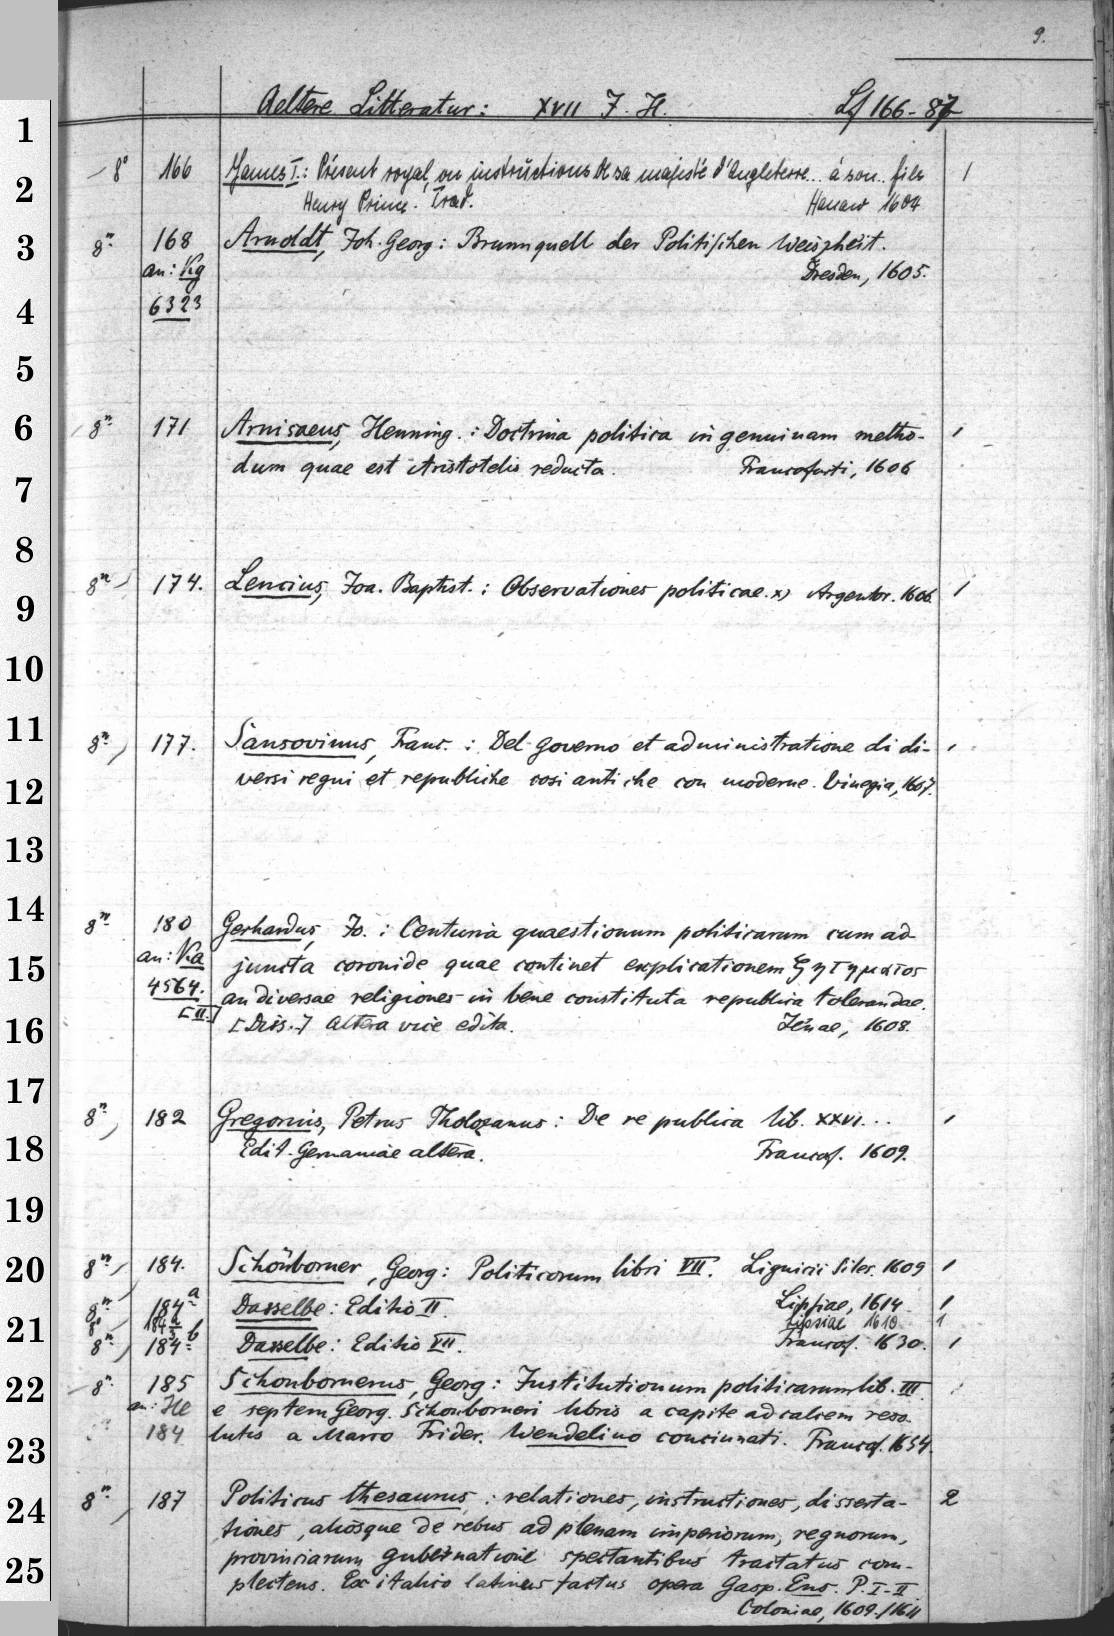 9.
Aeltere Litteratur: XVII J. H. Lf 166-87
1
8° 166 James I.: Présent royal, ou instructions de sa majesté d'Angleterre.. à son.. fils 1
2
Henry Prince. Trad. Hanau 1604
3
8° 168 Arnoldt, Joh. Georg: Brunnquell der Politischen Weiszheit.
an: Kg Dresden, 1605.
4
6323
5
6
8° 171 Arnisaeus, Henning.: Doctrina politica in genuinam metho- 1
dum quae est Aristotelis reducta. Francofurti, 1606
7
8
8° 174. Lencius, Joa. Baptist.: Observationes politicae. x) Argentor. 1606. 1
9
10
11
8° 177. Sansovinus, Franc.: Del governo et administratione di di- 1
12
versi regni et republiche cosi antiche con moderne. Vinegia, 1607.
13
14
8° 180 Gerhardus, Jo.: Centuria quaestionum politicarum cum ad-
15
an: Ka juncta coronide quae continet explicationem ζητηματος
4564. an diversae religiones in bene constituta republica tolerandae.
16
[II.] [Diss.] Altera vice edita. Jenae, 1608.
17
8° 182 Gregorius, Petrus Tholozanus: De re publica lib. XXVI... 1
18
Edit. Germaniae altera. Francof. 1609.
19
20
8° 184. Schönborner, Georg: Politicorum libri VII. Lignicii Siles. 1609 1
8° 184 a Dasselbe: Editio II. Lipsiae, 1614 1
21
8° 184 Lipsiae 1618 1
8° 184 b Dasselbe: Editio VII. Francof. 1630. 1
22
8° 185 Schonbornerus, Georg: Institutionum politicarum lib. III
an: He e septem Georg. Schonborneri libris a capite ad calcem reso-
23
184 lutis a Marco Frider. Wendelino concinnati. Francof. 1654.
24
8° 187 Politicus thesaurus: relationes, instructiones, disserta- 2
tiones, aliosque de rebus ad plenam imperiorum, regnorum,
25
provinciarum gubernatione spectantibus tractatus com-
plectens. Ex italico latineus factus opera Gasp. Ens. P. I-II
Coloniae, 1609./1611